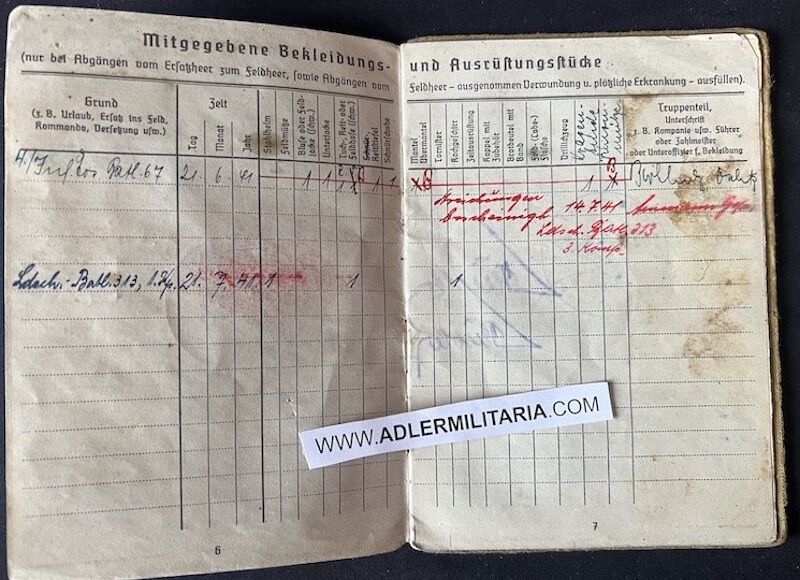 Mitgegebene Bekleidungs-
(nur bei Abgängen vom Ersatzheer zum Feldheer, sowie Abgängen vom
Grund
(z. B. Urlaub, Ersatz ins Feld,
Kommando, Versetzung usw.)
Zeit
Tag
Monat
Jahr
Stahlhelm
Feldmütze
Bluse oder Feld-
jacke (schw.)
Unterjacke
Tuch-, Reit- oder
Feldhose (schw.)
Schnürschuhe
Batl. 67
21. 6. 41 1 1
Ldsch.-Batl. 313, 1. Kp. 21. 7. 41. 1 1
6
und Ausrüstungsstücke
Feldheer – ausgenommen Verwundung u. plötzliche Erkrankung – ausfüllen).
Mantel
Übermantel
Tornister
Zeltausrüstung
Koppel mit
Zubehör
Brotbeutel mit
Band
Drillichzeug
Truppenteil,
Unterschrift
z. B. Kompanie usw. Führer
oder Zahlmeister
oder Unteroffizier f. Bekleidung
1 1
Streichungen
bescheinigt 14.7.41
Ldsch. Batl. 313
3. Komp.
1
WWW.ADLERMILITARIA.COM
7